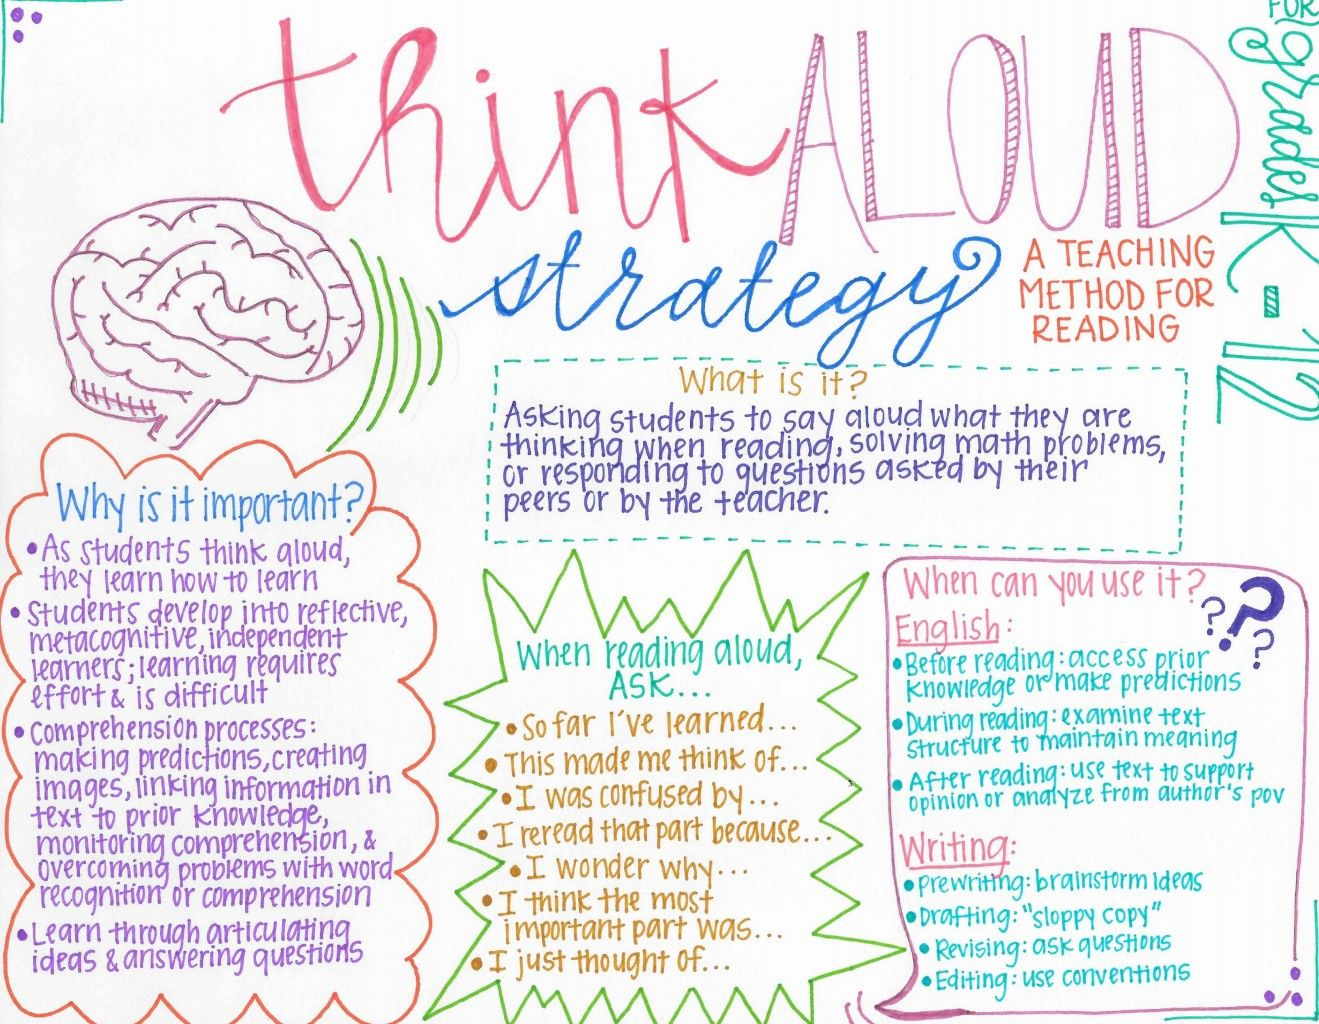 think ALOUD
strategy
A TEACHING
METHOD FOR
READING
FOR
grades
K-12
What is it?
Asking students to say aloud what they are
thinking when reading, solving math problems,
or responding to questions asked by their
peers or by the teacher.
Why is it important?
•As students think aloud,
they learn how to learn
•Students develop into reflective,
metacognitive, independent
learners; learning requires
effort & is difficult
•Comprehension processes:
making predictions, creating
images, linking information in
text to prior knowledge,
monitoring comprehension, &
overcoming problems with word
recognition or comprehension
•Learn through articulating
ideas & answering questions
When reading aloud,
ASK...
•So far I've learned...
•This made me think of...
•I was confused by...
•I reread that part because...
•I wonder why...
•I think the most
important part was...
•I just thought of...
When can you use it?
???
English:
•Before reading: access prior
knowledge or make predictions
•During reading: examine text
structure to maintain meaning
•After reading: use text to support
opinion or analyze from author's pov
Writing:
•Prewriting: brainstorm ideas
•Drafting: "sloppy copy"
•Revising: ask questions
•Editing: use conventions